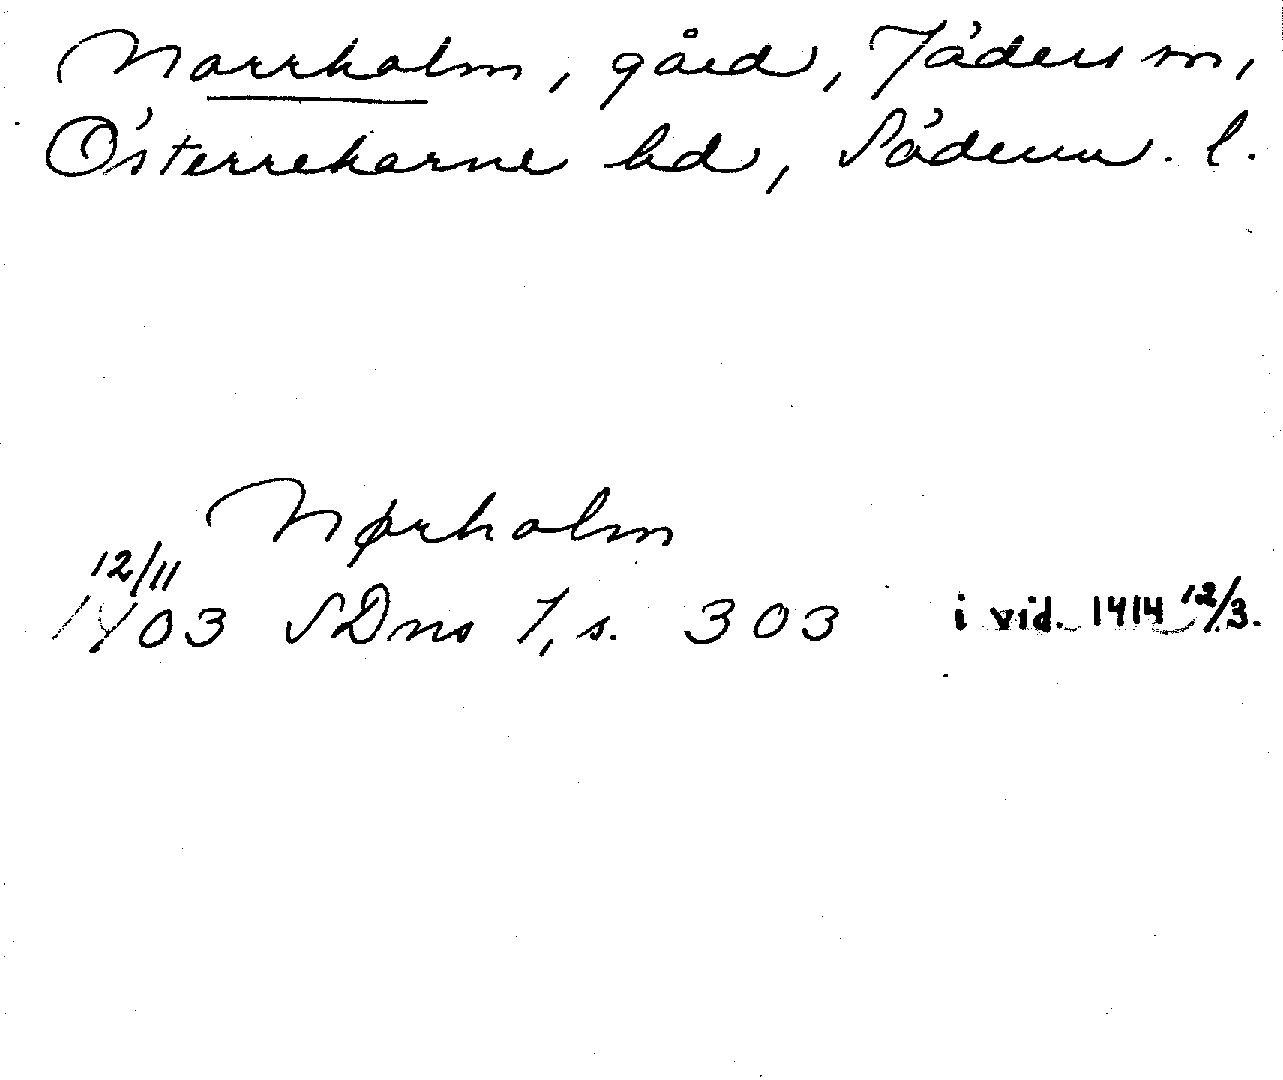 Norrholm, gård, Jäders sn,
Österrekarne hd, Söderm. l.
Nørholm
12/11
1403 SDns 1, s. 303 i vid. 1414 12/3.